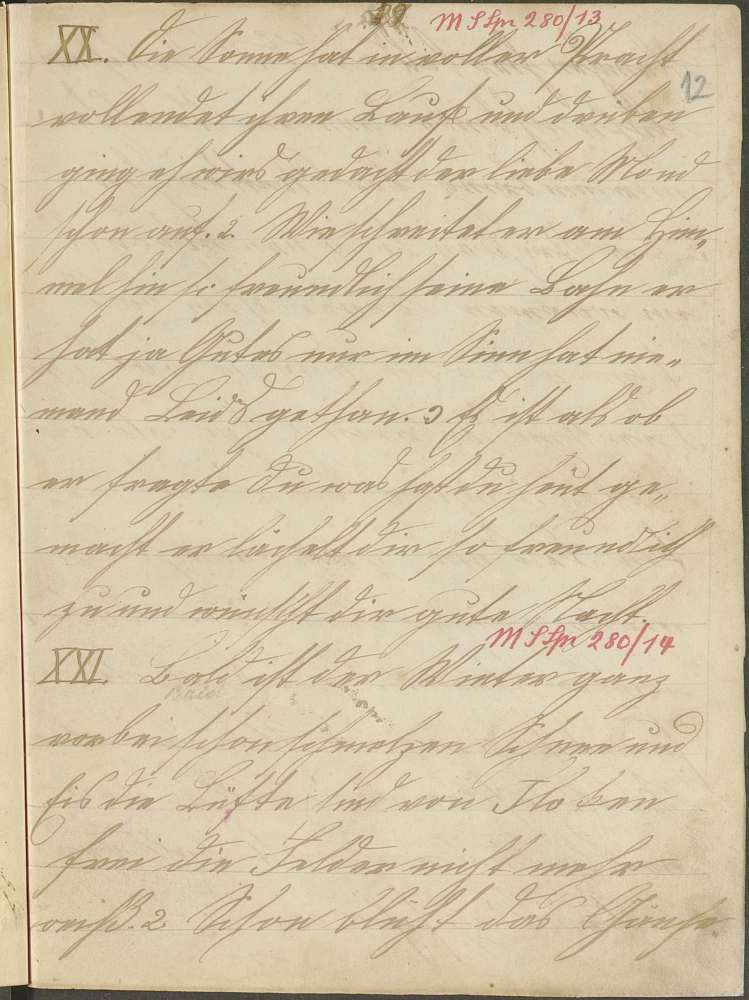 29
M S Spr 280/13
XX. Die Sonne hat in voller Pracht
12
vollendet ihren Lauf und drüben
ging eh wirs gedacht der liebe Mond
schon auf. 2. Wie schreitet er am Him„
mel hin so freundlich seine Bahn er
hat ja Gutes nur im Sinn hat nie„
mand Leids gethan. 3 Es ist als ob
er fragte Du was hast du heut ge„
macht er lächelt dir so freundlich
zu und wünscht dir gute Nacht.
M S Spr 280/14
XXI. Bald ist der Winter ganz
Bald
vorbei schon schmolzen Schnee und
Eis die Lüfte sind von Floken
frei die Felder nicht mehr
weiß. 2 Schon blüht das Gänse